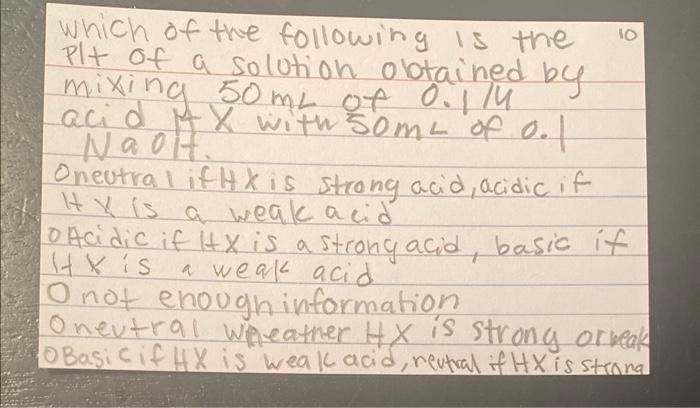 which of the following is the 10
PH of a solution obtained by
mixing 50 mL of 0.1 M
acid HX with 50mL of 0.1
NaOH.
O neutral if HX is strong acid, acidic if
HX is a weak acid
O Acidic if HX is a strong acid, basic if
HX is a weak acid
O not enough information
O neutral wheather HX is strong or weak
O Basic if HX is weak acid, neutral if HX is strong